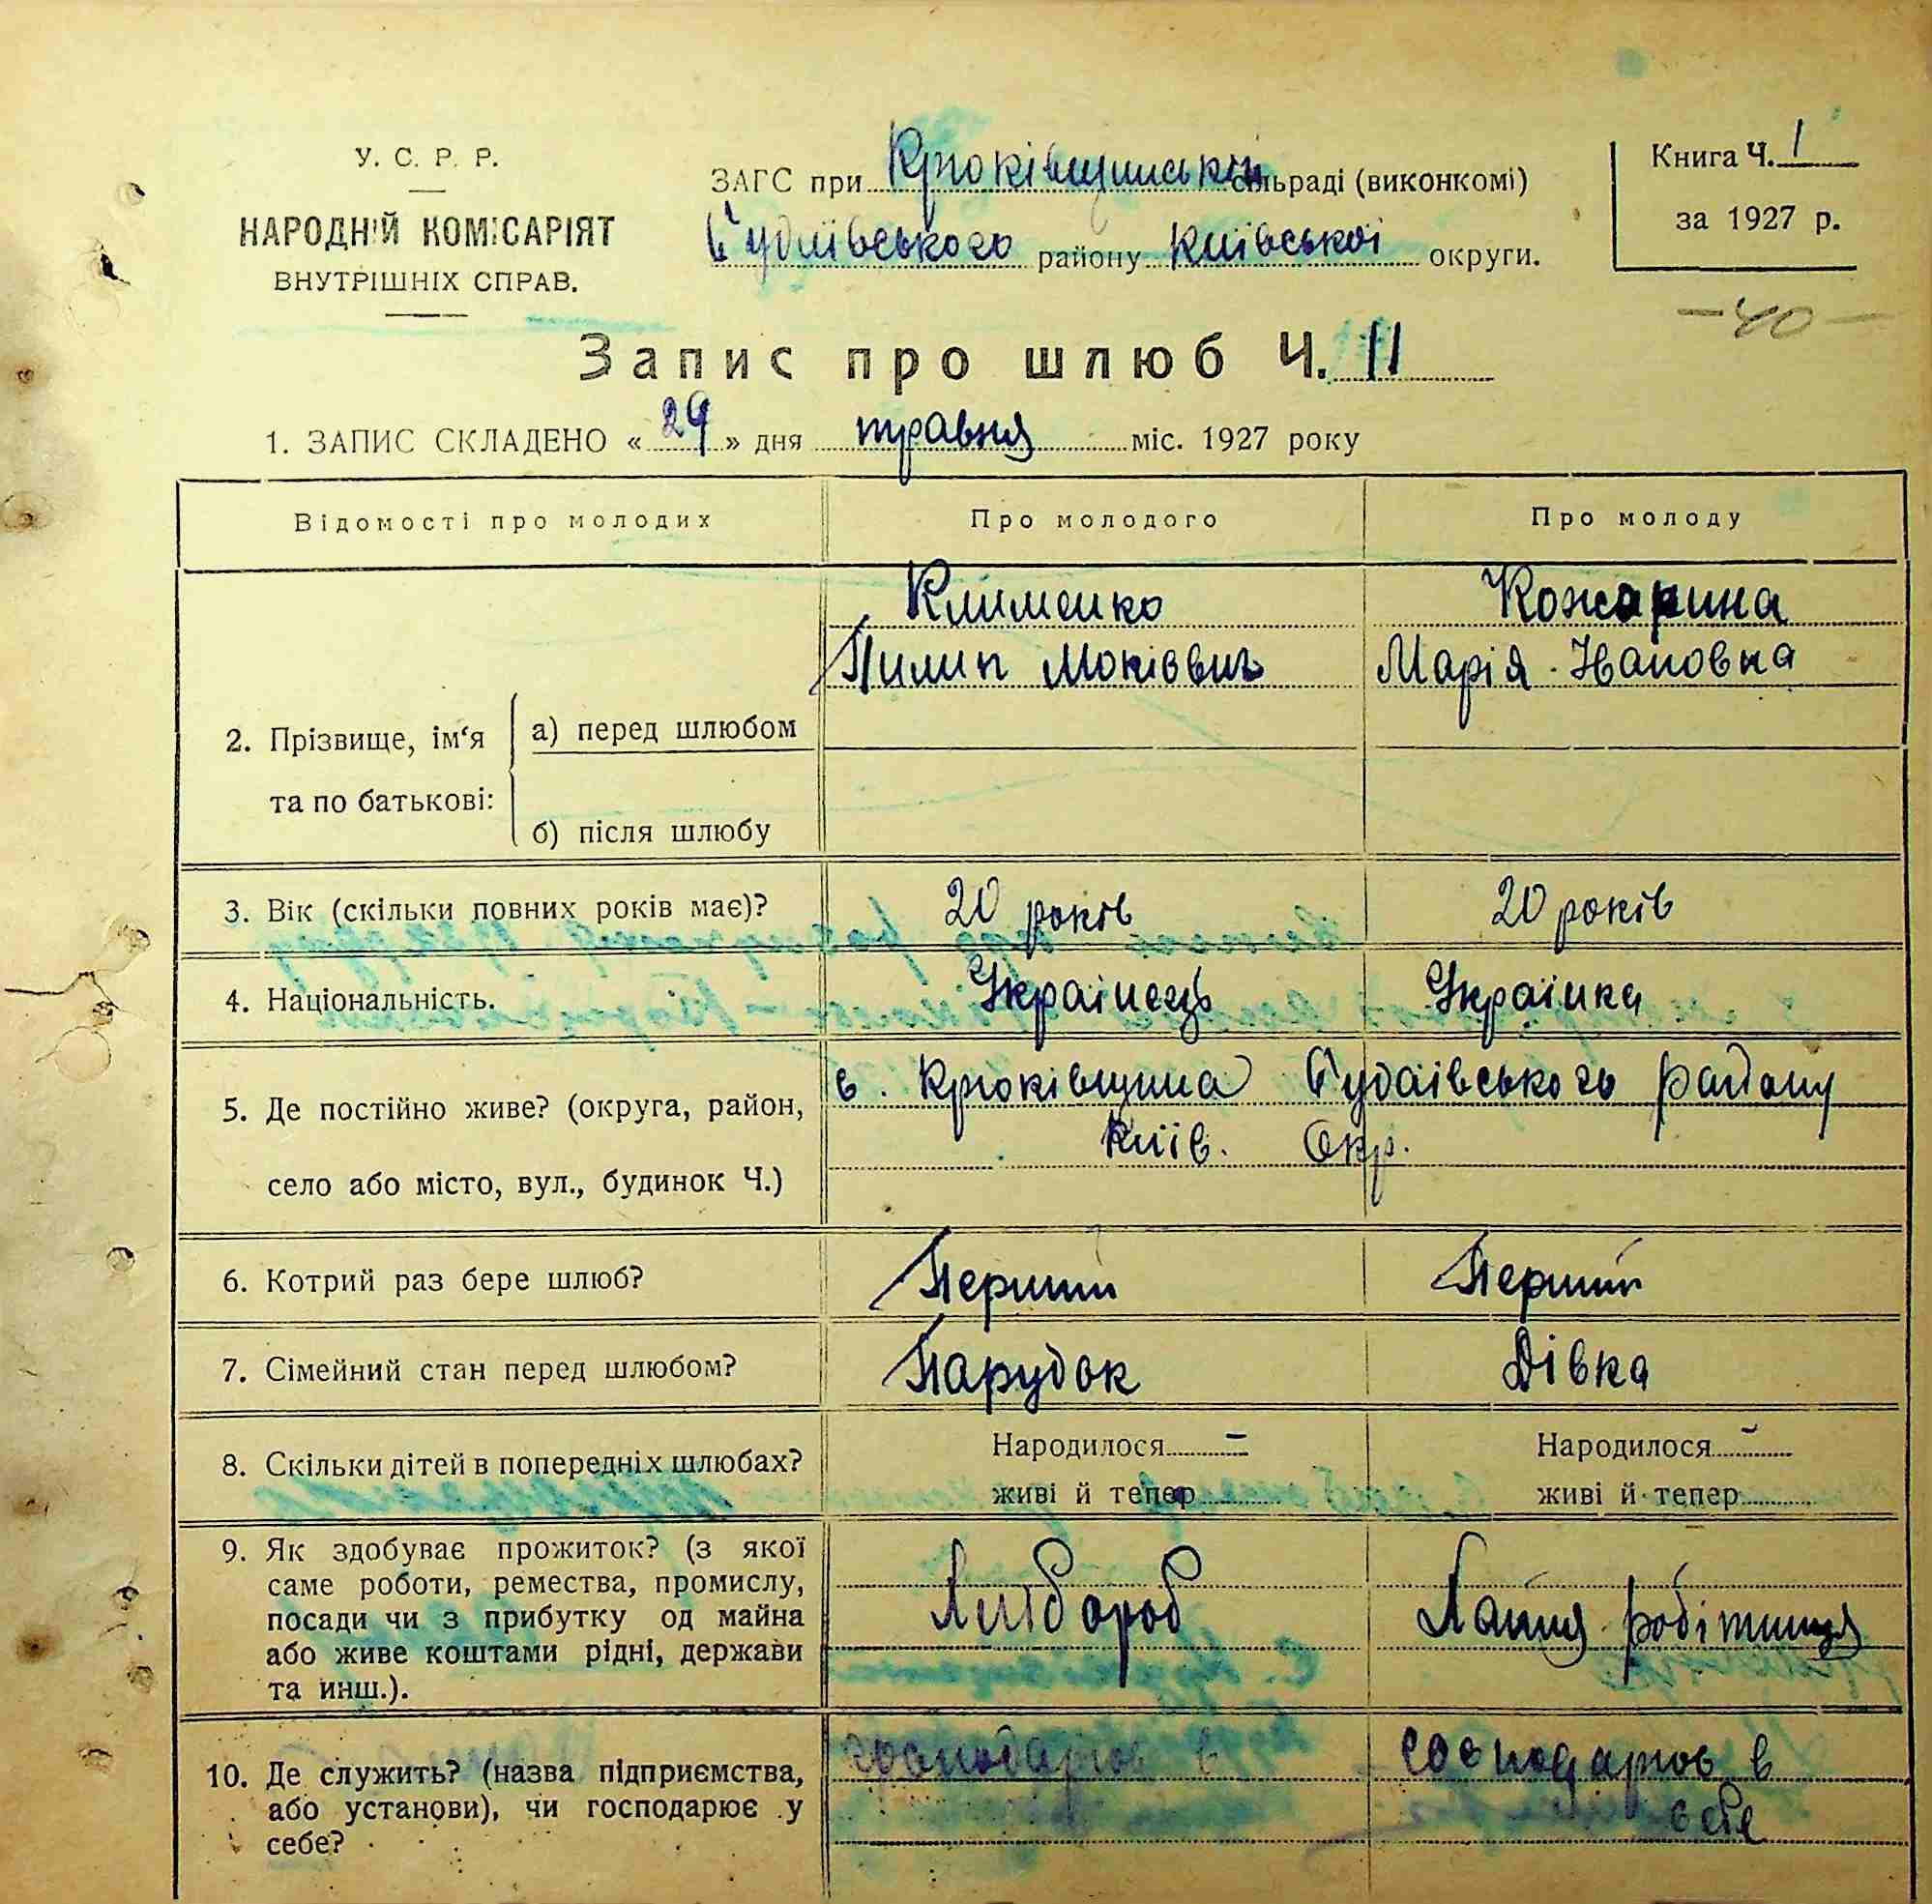 У. С. Р. Р.
НАРОДНІЙ КОМІСАРІЯТ
ВНУТРІШНІХ СПРАВ.
ЗАГС при Крюківщинській сільраді (виконкомі)
Будаївського району Київської округи.
Книга Ч. 1
за 1927 р.
-40-
Запис про шлюб Ч. 11
1. ЗАПИС СКЛАДЕНО « 29 » дня травня міс. 1927 року
Відомості про молодих
Про молодого
Про молоду
2. Прізвище, ім‘я
та по батькові:
а) перед шлюбом
б) після шлюбу
Клименко
Пилип Мокіович
Марія Івановна
3. Вік (скільки повних років має)?
20 років
20 років
4. Національність.
Українець
Українка
5. Де постійно живе? (округа, район,
село або місто, вул., будинок Ч.)
с. Крюківщина Будаївського району
Київ. Окр.
6. Котрий раз бере шлюб?
Перший
Перший
7. Сімейний стан перед шлюбом?
Парубок
Дівка
8. Скільки дітей в попередніх шлюбах?
Народилося –
живі й тепер
Народилося –
живі й тепер
9. Як здобуває прожиток? (з якої
саме роботи, ремества, промислу,
посади чи з прибутку од майна
або живе коштами рідні, держави
та инш.).
Хлібороб
Хатня робітниця
10. Де служить? (назва підприємства,
або установи), чи господарює у
себе?
господарює в
господарює в
себе